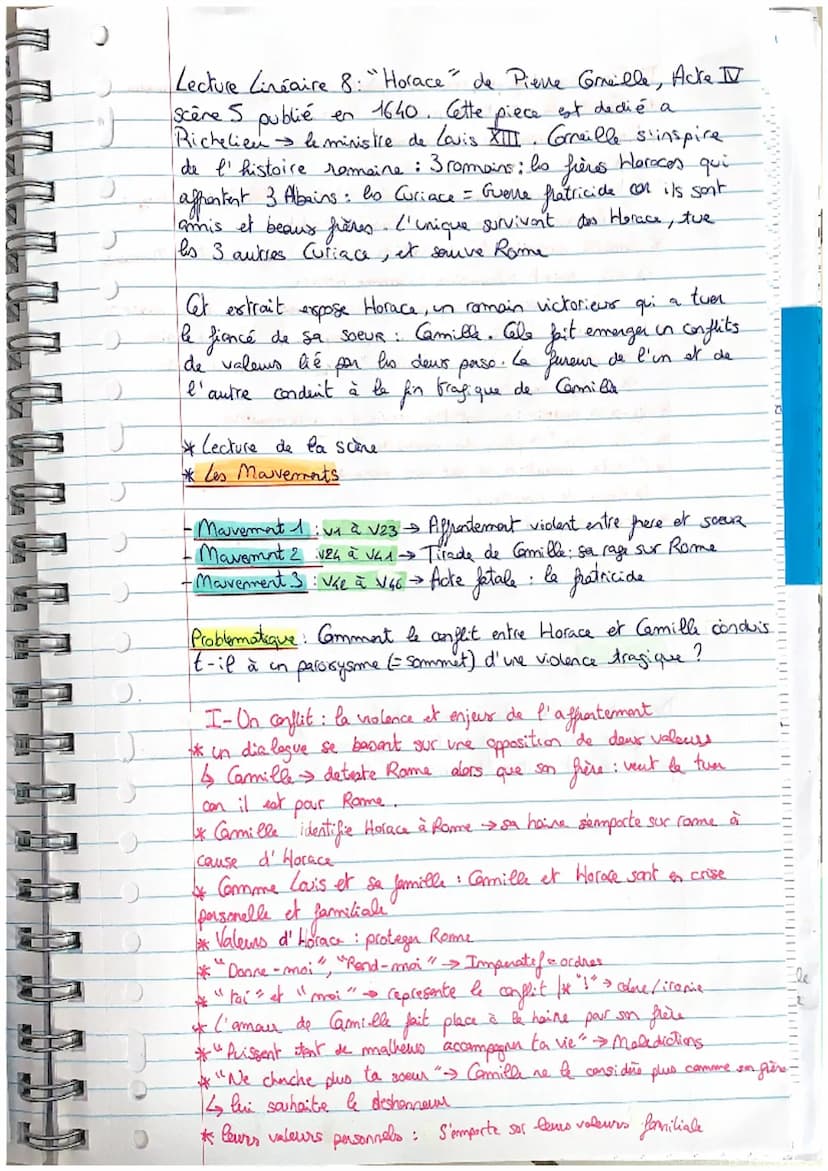 Lecture Linéaire 8 : "Horace" de Pierre Corneille, Acte IV
scène 5 publié en 1640. Cette piece est dedié a
Richelieu → le ministre de Louis XIII. Corneille s'inspire
de l'histoire romaine : 3 romains : les frères Horaces qui
affrontent 3 Albains : les Curiace = Guerre fratricide car ils sont
amis et beaux frères. L'unique survivant des Horace, tue
les 3 autres Curiace, et sauve Rome
Cet extrait expose Horace, un romain victorieux qui a tuer
le fiancé de sa soeur : Camille. Cela fait emerger un conflits
de valeurs lié par les deux perso. La fureur de l'un et de
l'autre conduit à la fin tragique de Camille
* Lecture de la scène
* Les Mouvements
- Mouvement 1 : v1 à v23 → Affrontement violent entre frere et soeur
- Mouvement 2 v24 à v41 → Tirade de Camille : sa rage sur Rome
- Mouvement 3 : v42 à v46 → Acte fatale : le fratricide
Problematique : Comment le conflit entre Horace et Camille conduis
t-il à un paroxysme (= sommet) d'une violence tragique ?
I- Un conflit : la violence et enjeux de l'affrontement
* un dialogue se basant sur une opposition de deux valeurs
↳ Camille → deteste Rome alors que son frère : veut la tuer
car il est pour Rome.
* Camille identifie Horace à Rome → sa haine s'emporte sur rome à
cause d'Horace
* Comme Louis et sa famille : Camille et Horace sont en crise
personelle et familiale
* Valeurs d'Horace : proteger Rome
* "Donne-moi", "Rend-moi" → Imperatif = ordres
* "toi" et "moi" → represente le conflit | * "!" → colere/ironie
* L'amour de Camille fait place à la haine pour son frère
* "Puissent tant de malheurs accompagner ta vie" → Maledictions
* "Ne cherche plus ta soeur" → Camille ne le considère plus comme son frère
↳ lui souhaite le deshonneur
* leurs valeurs personnels : S'emporte sur leurs valeurs familiale